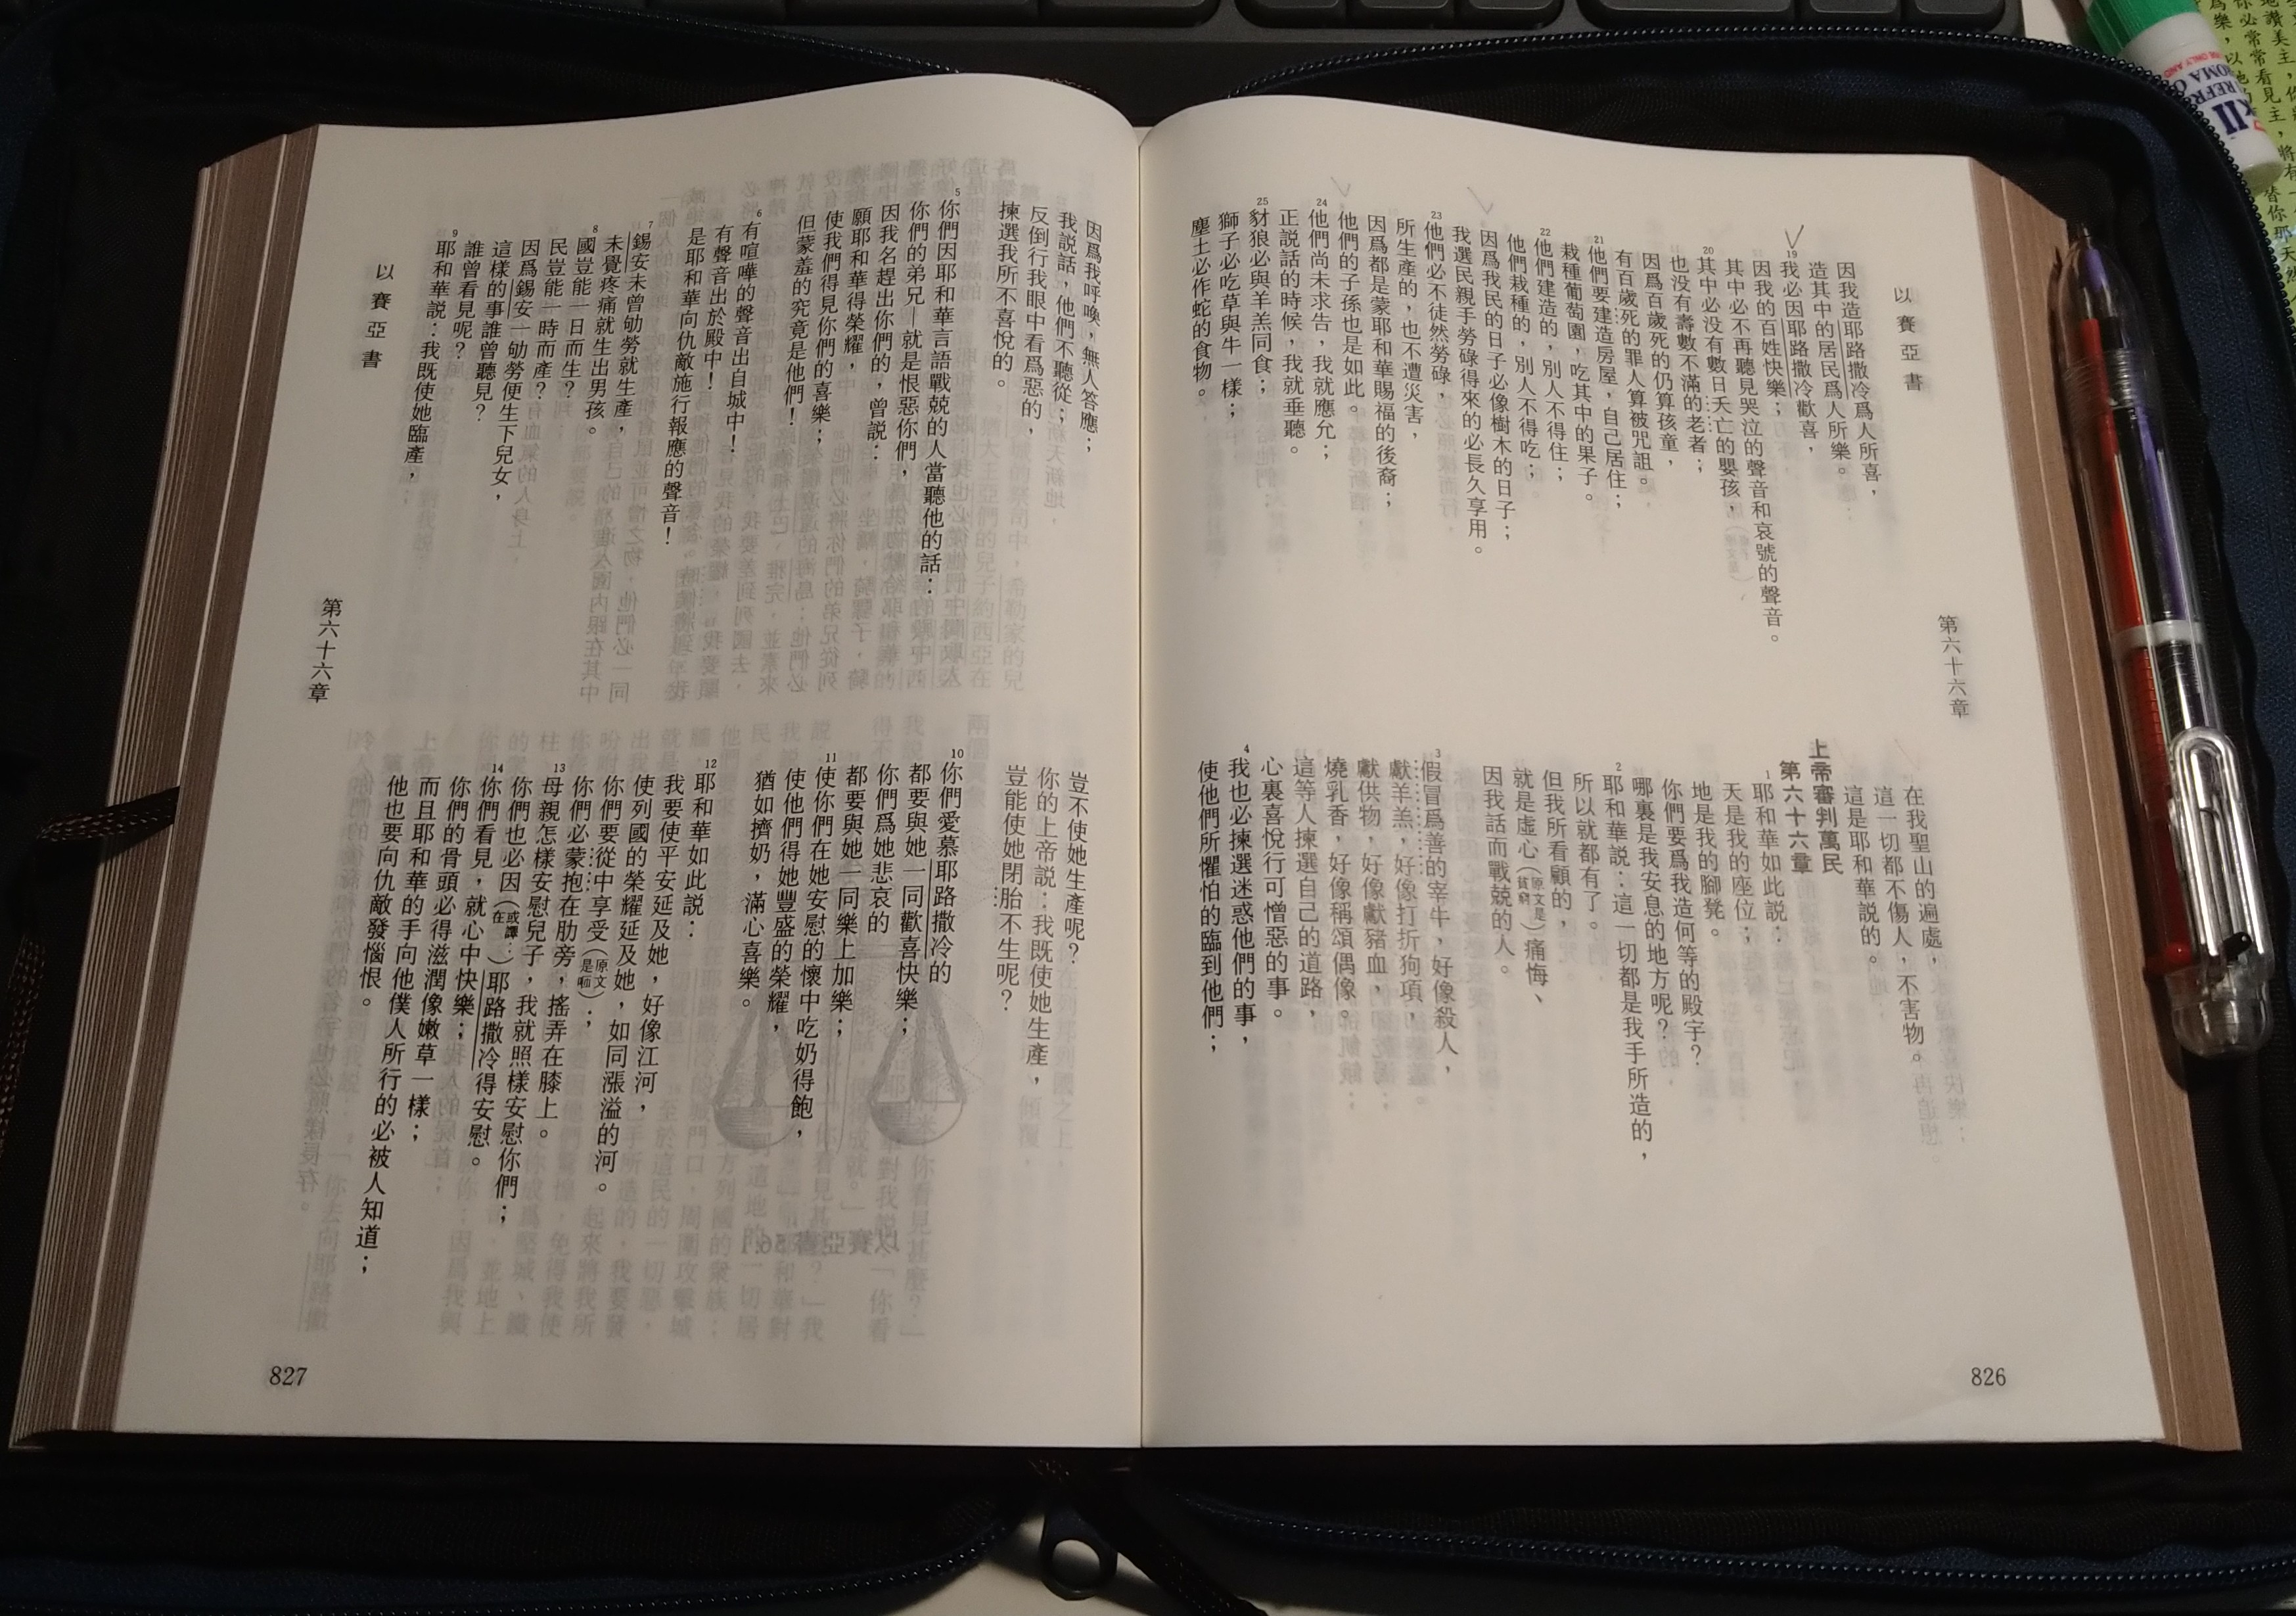 以賽亞書
第六十六章
因我造耶路撒冷爲人所喜，
造其中的居民爲人所樂。
19我必因耶路撒冷歡喜，
因我的百姓快樂；
其中必不再聽見哭泣的聲音和哀號的聲音。
20其中必没有數日夭亡的嬰孩，
也没有壽數不滿的老者；
因爲百歲死的仍算孩童，
有百歲死的罪人算被咒詛。
21他們要建造房屋，自己居住；
栽種葡萄園，吃其中的果子。
22他們建造的，別人不得住；
他們栽種的，別人不得吃；
因爲我民的日子必像樹木的日子；
我選民親手勞碌得來的必長久享用。
23他們必不徒然勞碌，
所生產的，也不遭災害，
因爲都是蒙耶和華賜福的後裔；
他們的子孫也是如此。
24他們尚未求告，我就應允；
正説話的時候，我就垂聽。
25豺狼必與羊羔同食；
獅子必吃草與牛一樣；
塵土必作蛇的食物。
在我聖山的遍處，
這一切都不傷人，不害物。
這是耶和華説的。
上帝審判萬民
第六十六章
1耶和華如此説：
天是我的座位；
地是我的腳凳。
你們要爲我造何等的殿宇？
哪裏是我安息的地方呢？
2耶和華説：這一切都是我手所造的，
所以就都有了。
但我所看顧的，
就是虛心（原文是貧窮）痛悔、
因我話而戰兢的人。
3假冒爲善的宰牛，好像殺人，
獻羊羔，好像打折狗項，
獻供物，好像獻豬血，
燒乳香，好像稱頌偶像。
這等人揀選自己的道路，
心裏喜悅行可憎惡的事。
4我也必揀選迷惑他們的事，
使他們所懼怕的臨到他們；
826
因爲我呼喚，無人答應；
我説話，他們不聽從；
反倒行我眼中看爲惡的，
揀選我所不喜悅的。
5你們因耶和華言語戰兢的人當聽他的話：
你們的弟兄—就是恨惡你們，
因我名趕出你們的，曾説：
願耶和華得榮耀，
使我們得見你們的喜樂；
但蒙羞的究竟是他們！
6有喧嘩的聲音出自城中！
有聲音出於殿中！
是耶和華向仇敵施行報應的聲音！
7錫安未曾劬勞就生產，
未覺疼痛就生出男孩。
8國豈能一日而生？
民豈能一時而產？
因爲錫安一劬勞便生下兒女，
這樣的事誰曾聽見？
誰曾看見呢？
9耶和華説：我既使她臨產，
以賽亞書
第六十六章
豈不使她生產呢？
你的上帝説：我既使她生產，
豈能使她閉胎不生呢？
10你們愛慕耶路撒冷的
都要與她一同歡喜快樂；
你們爲她悲哀的
都要與她一同樂上加樂；
11使你們在她安慰的懷中吃奶得飽，
使他們得她豐盛的榮耀，
猶如擠奶，滿心喜樂。
12耶和華如此説：
我要使平安延及她，好像江河，
使列國的榮耀延及她，如同漲溢的河。
你們要從中享受（原文是咂）；
你們必蒙抱在肋旁，搖弄在膝上。
13母親怎樣安慰兒子，我就照樣安慰你們；
你們也必因（或譯：在）耶路撒冷得安慰。
14你們看見，就心中快樂；
你們的骨頭必得滋潤像嫩草一樣；
而且耶和華的手向他僕人所行的必被人知道；
他也要向仇敵發惱恨。
827